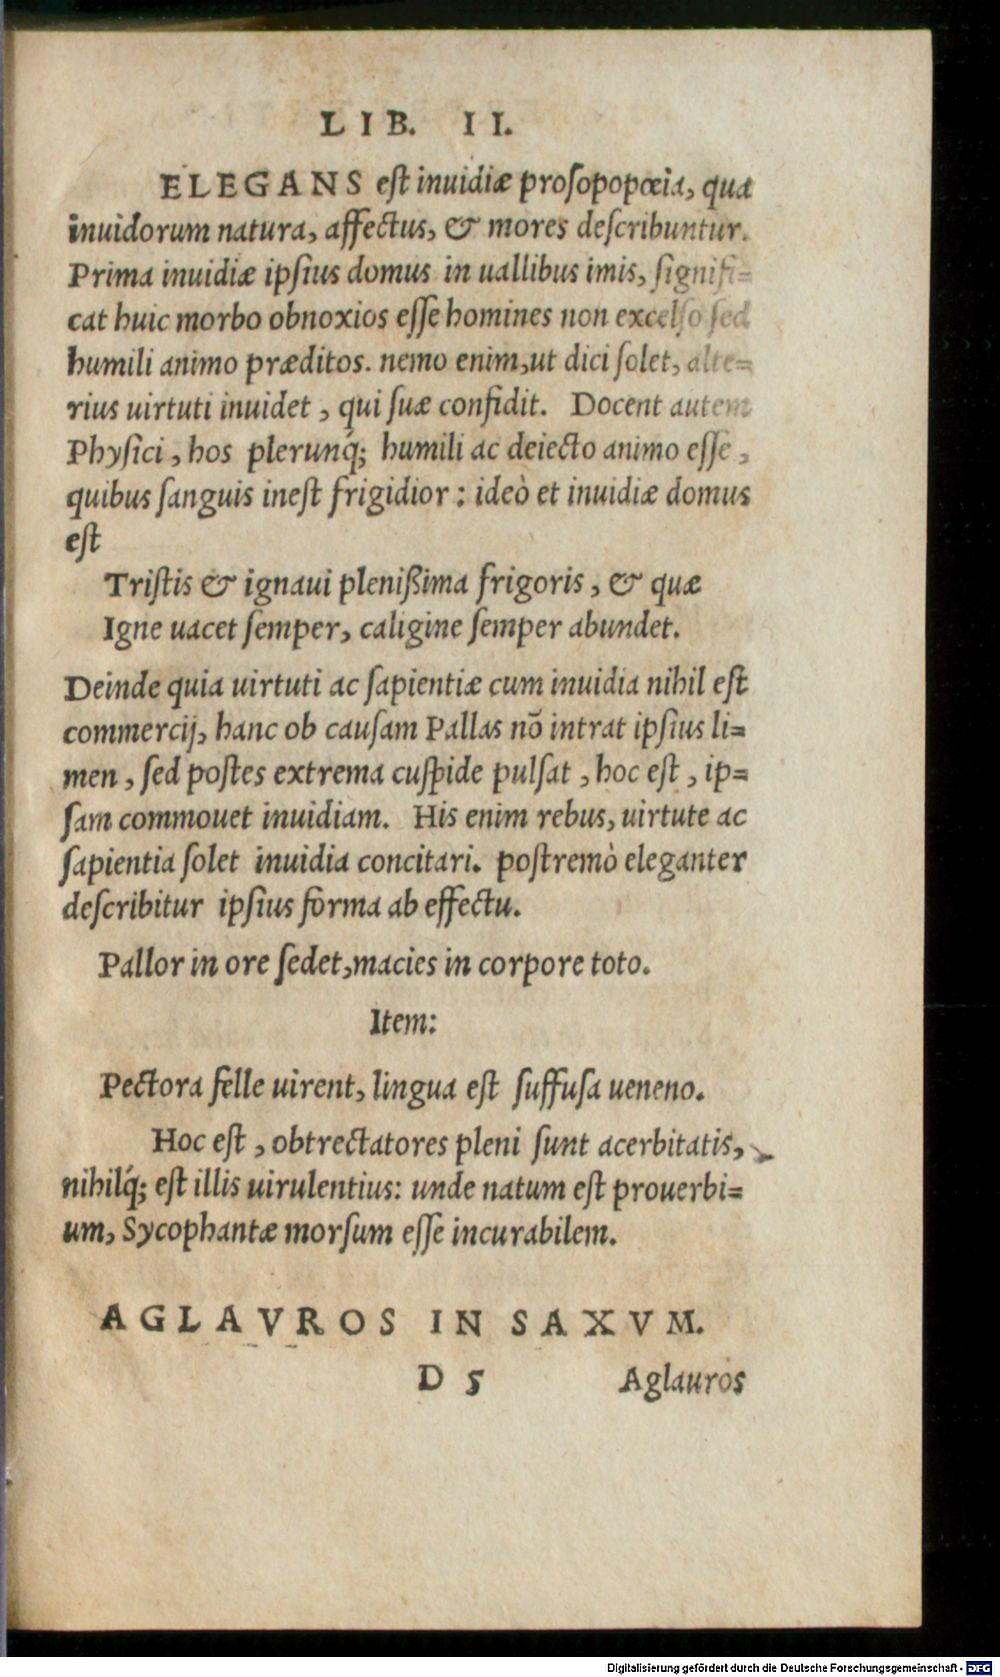 LIB. II.
ELEGANS est inuidiæ prosopopœia, qua
inuidorum natura, affectus, & mores describuntur.
Prima inuidiæ ipsius domus in uallibus imis, signifi=
cat huic morbo obnoxios esse homines non excelso sed
humili animo præditos. nemo enim, ut dici solet, alte=
rius uirtuti inuidet, qui suæ confidit. Docent autem
Physici, hos plerunq́; humili ac deiecto animo esse,
quibus sanguis inest frigidior: ideò et inuidiæ domus
est
Tristis & ignaui plenißima frigoris, & quæ
Igne uacet semper, caligine semper abundet.
Deinde quia uirtuti ac sapientiæ cum inuidia nihil est
commercij, hanc ob causam Pallas nō intrat ipsius li=
men, sed postes extrema cuspide pulsat, hoc est, ip=
sam commouet inuidiam. His enim rebus, uirtute ac
sapientia solet inuidia concitari. postremò eleganter
describitur ipsius forma ab effectu.
Pallor in ore sedet, macies in corpore toto.
Item:
Pectora felle uirent, lingua est suffusa ueneno.
Hoc est, obtrectatores pleni sunt acerbitatis,
nihilq́; est illis uirulentius: unde natum est prouerbi=
um, Sycophantæ morsum esse incurabilem.
AGLAVROS IN SAXVM.
D 5 Aglauros
Digitalisierung gefördert durch die Deutsche Forschungsgemeinschaft - DFG